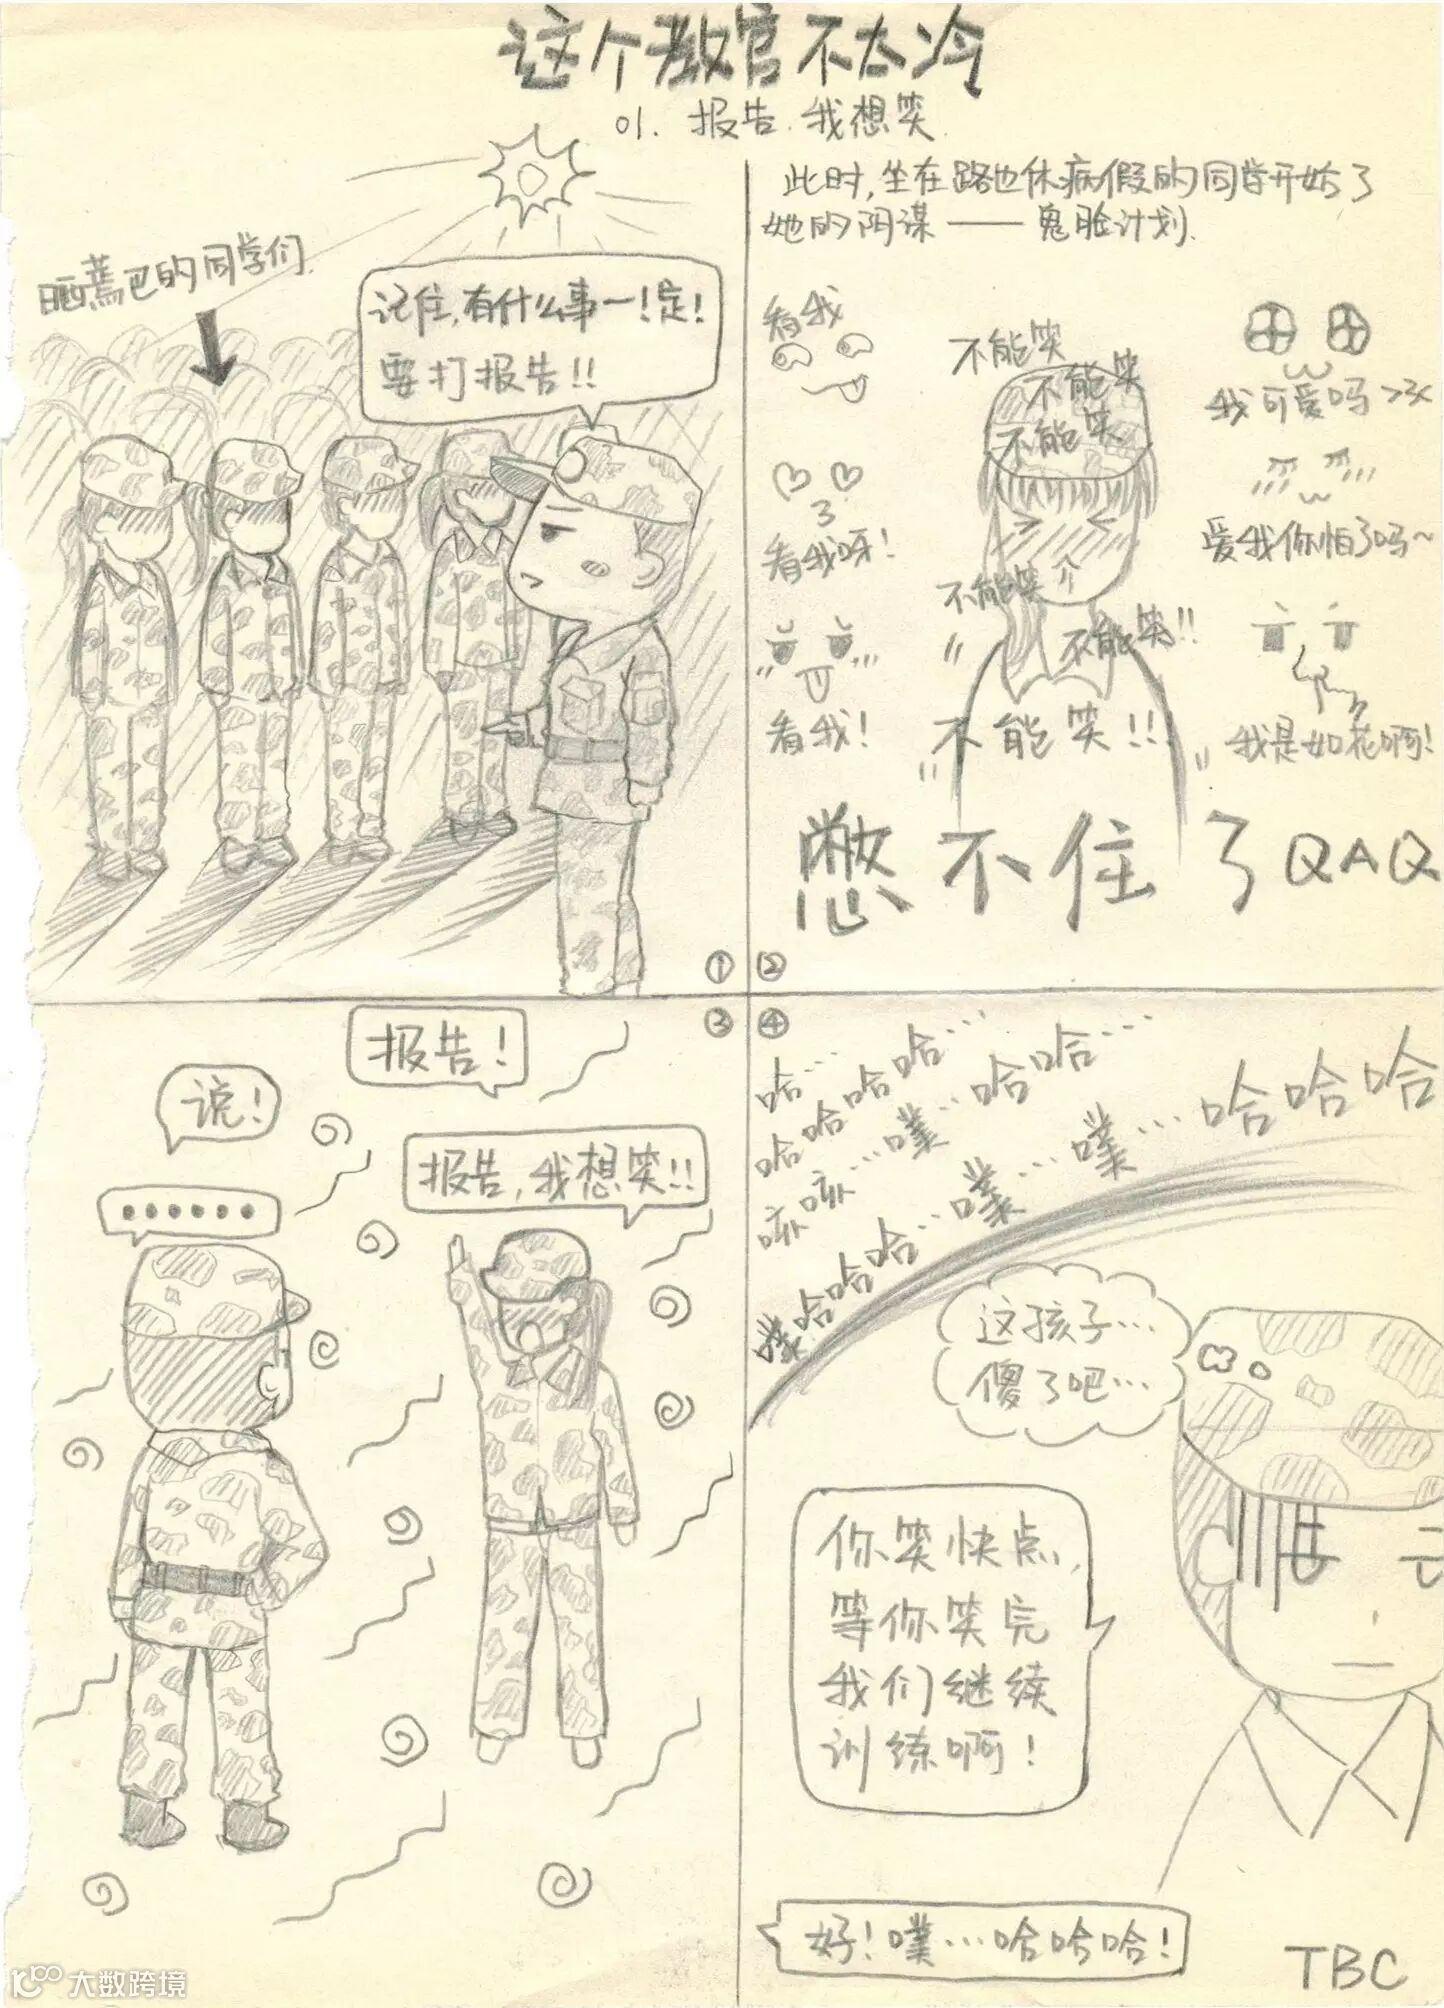 这个教官不太冷
01. 报告.我想笑
晒蔫巴的同学们
记住,有什么事一!定!
要打报告!!
①
此时,坐在路边休病假的同学开始了
她的阴谋——鬼脸计划.
看我
看我呀!
看我!
不能笑
不能笑
不能笑
不能笑
不能笑!!
不能笑!!!
我可爱吗>3<
爱我你怕了吗~
我是如花啊!
憋不住了QAQ
②
③
报告!
说!
报告,我想笑!!
......
④
哈…
哈哈哈哈…
咳咳…噗…哈哈…
噗哈哈哈…噗…噗…哈哈哈
这孩子…
傻了吧…
你笑快点,
等你笑完
我们继续
训练啊!
好!噗…哈哈哈!
TBC
10100 大数跨境